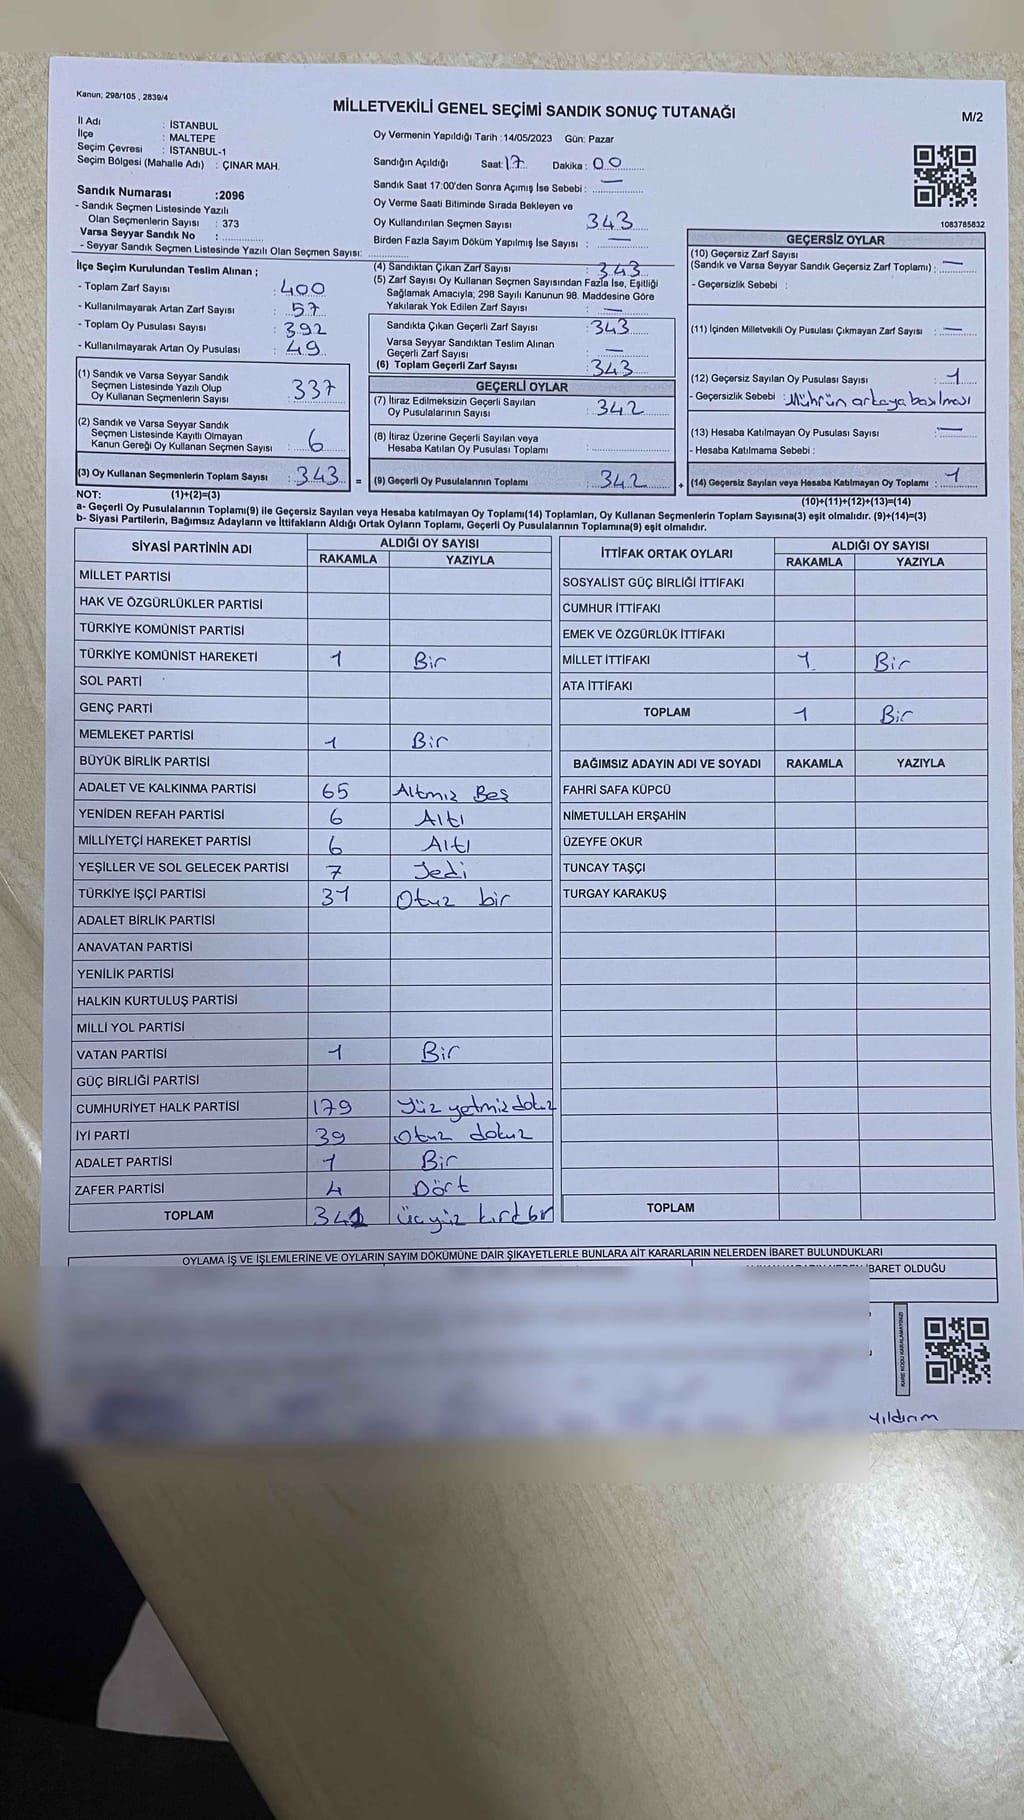 Kanun; 298/105 , 2839/4
MİLLETVEKİLİ GENEL SEÇİMİ SANDIK SONUÇ TUTANAĞI
M/2
İl Adı : İSTANBUL
İlçe : MALTEPE
Seçim Çevresi : İSTANBUL-1
Seçim Bölgesi (Mahalle Adı) : ÇINAR MAH.
Sandık Numarası :2096
- Sandık Seçmen Listesinde Yazılı
Olan Seçmenlerin Sayısı : 373
Varsa Seyyar Sandık No :
- Seyyar Sandık Seçmen Listesinde Yazılı Olan Seçmen Sayısı:
Oy Vermenin Yapıldığı Tarih : 14/05/2023 Gün: Pazar
Sandığın Açıldığı Saat: 17 Dakika : 00
Sandık Saat 17:00'den Sonra Açımış İse Sebebi : —
Oy Verme Saati Bitiminde Sırada Bekleyen ve
Oy Kullandırılan Seçmen Sayısı 343
Birden Fazla Sayım Döküm Yapılmış İse Sayısı : —
1083785832
İlçe Seçim Kurulundan Teslim Alınan ;
- Toplam Zarf Sayısı : 400
- Kullanılmayarak Artan Zarf Sayısı : 57
- Toplam Oy Pusulası Sayısı : 392
- Kullanılmayarak Artan Oy Pusulası : 49
(1) Sandık ve Varsa Seyyar Sandık
Seçmen Listesinde Yazılı Olup
Oy Kullanan Seçmenlerin Sayısı : 337
(2) Sandık ve Varsa Seyyar Sandık
Seçmen Listesinde Kayıtlı Olmayan
Kanun Gereği Oy Kullanan Seçmen Sayısı : 6
(3) Oy Kullanan Seçmenlerin Toplam Sayısı : 343 =
(4) Sandıktan Çıkan Zarf Sayısı : 343
(5) Zarf Sayısı Oy Kullanan Seçmen Sayısından Fazla İse, Eşitliği
Sağlamak Amacıyla; 298 Sayılı Kanunun 98. Maddesine Göre
Yakılarak Yok Edilen Zarf Sayısı : —
Sandıkta Çıkan Geçerli Zarf Sayısı : 343
Varsa Seyyar Sandıktan Teslim Alınan
Geçerli Zarf Sayısı : —
(6) Toplam Geçerli Zarf Sayısı : 343
GEÇERLİ OYLAR
(7) İtiraz Edilmeksizin Geçerli Sayılan
Oy Pusulalarının Sayısı : 342
(8) İtiraz Üzerine Geçerli Sayılan veya
Hesaba Katılan Oy Pusulası Toplamı :
(9) Geçerli Oy Pusulalarının Toplamı : 342 +
GEÇERSİZ OYLAR
(10) Geçersiz Zarf Sayısı
(Sandık ve Varsa Seyyar Sandık Geçersiz Zarf Toplamı) : —
- Geçersizlik Sebebi :
(11) İçinden Milletvekili Oy Pusulası Çıkmayan Zarf Sayısı : —
(12) Geçersiz Sayılan Oy Pusulası Sayısı : 1
- Geçersizlik Sebebi : Mührün arkaya basılması
(13) Hesaba Katılmayan Oy Pusulası Sayısı : —
- Hesaba Katılmama Sebebi :
(14) Geçersiz Sayılan veya Hesaba Katılmayan Oy Toplamı : 1
NOT: (1)+(2)=(3)
(10)+(11)+(12)+(13)=(14)
a- Geçerli Oy Pusulalarının Toplamı(9) ile Geçersiz Sayılan veya Hesaba katılmayan Oy Toplamı(14) Toplamları, Oy Kullanan Seçmenlerin Toplam Sayısına(3) eşit olmalıdır. (9)+(14)=(3)
b- Siyasi Partilerin, Bağımsız Adayların ve İttifakların Aldığı Ortak Oyların Toplamı, Geçerli Oy Pusulalarının Toplamına(9) eşit olmalıdır.
SİYASİ PARTİNİN ADI ALDIĞI OY SAYISI
RAKAMLA YAZIYLA
MİLLET PARTİSİ
HAK VE ÖZGÜRLÜKLER PARTİSİ
TÜRKİYE KOMÜNİST PARTİSİ
TÜRKİYE KOMÜNİST HAREKETİ 1 Bir
SOL PARTİ
GENÇ PARTİ
MEMLEKET PARTİSİ 1 Bir
BÜYÜK BİRLİK PARTİSİ
ADALET VE KALKINMA PARTİSİ 65 Altmız Beş
YENİDEN REFAH PARTİSİ 6 Altı
MİLLİYETÇİ HAREKET PARTİSİ 6 Altı
YEŞİLLER VE SOL GELECEK PARTİSİ 7 Yedi
TÜRKİYE İŞÇİ PARTİSİ 31 Otuz bir
ADALET BİRLİK PARTİSİ
ANAVATAN PARTİSİ
YENİLİK PARTİSİ
HALKIN KURTULUŞ PARTİSİ
MİLLİ YOL PARTİSİ
VATAN PARTİSİ 1 Bir
GÜÇ BİRLİĞİ PARTİSİ
CUMHURİYET HALK PARTİSİ 179 Yüz yetmiz dokuz
İYİ PARTİ 39 Otuz dokuz
ADALET PARTİSİ 1 Bir
ZAFER PARTİSİ 4 Dört
TOPLAM 341 üçyüz kırkbir
İTTİFAK ORTAK OYLARI ALDIĞI OY SAYISI
RAKAMLA YAZIYLA
SOSYALİST GÜÇ BİRLİĞİ İTTİFAKI
CUMHUR İTTİFAKI
EMEK VE ÖZGÜRLÜK İTTİFAKI
MİLLET İTTİFAKI 1 Bir
ATA İTTİFAKI
TOPLAM 1 Bir
BAĞIMSIZ ADAYIN ADI VE SOYADI RAKAMLA YAZIYLA
FAHRİ SAFA KÜPCÜ
NİMETULLAH ERŞAHİN
ÜZEYFE OKUR
TUNCAY TAŞÇI
TURGAY KARAKUŞ
TOPLAM
OYLAMA İŞ VE İŞLEMLERİNE VE OYLARIN SAYIM DÖKÜMÜNE DAİR ŞİKAYETLERLE BUNLARA AİT KARARLARIN NELERDEN İBARET BULUNDUKLARI
İBARET OLDUĞU
KARE KODU KARALAMAYINIZ!
Yıldırım